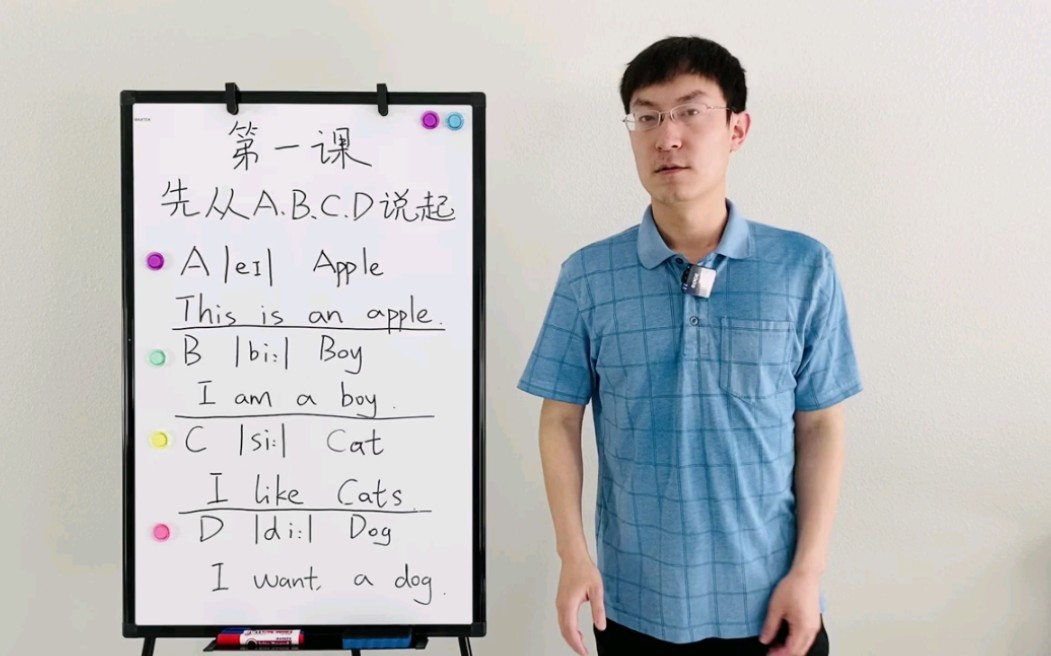 第一课
先从A.B.C.D说起
A |eɪ| Apple
This is an apple.
B |bi:| Boy
I am a boy.
C |si:| Cat
I like Cats.
D |di:| Dog
I want a dog.